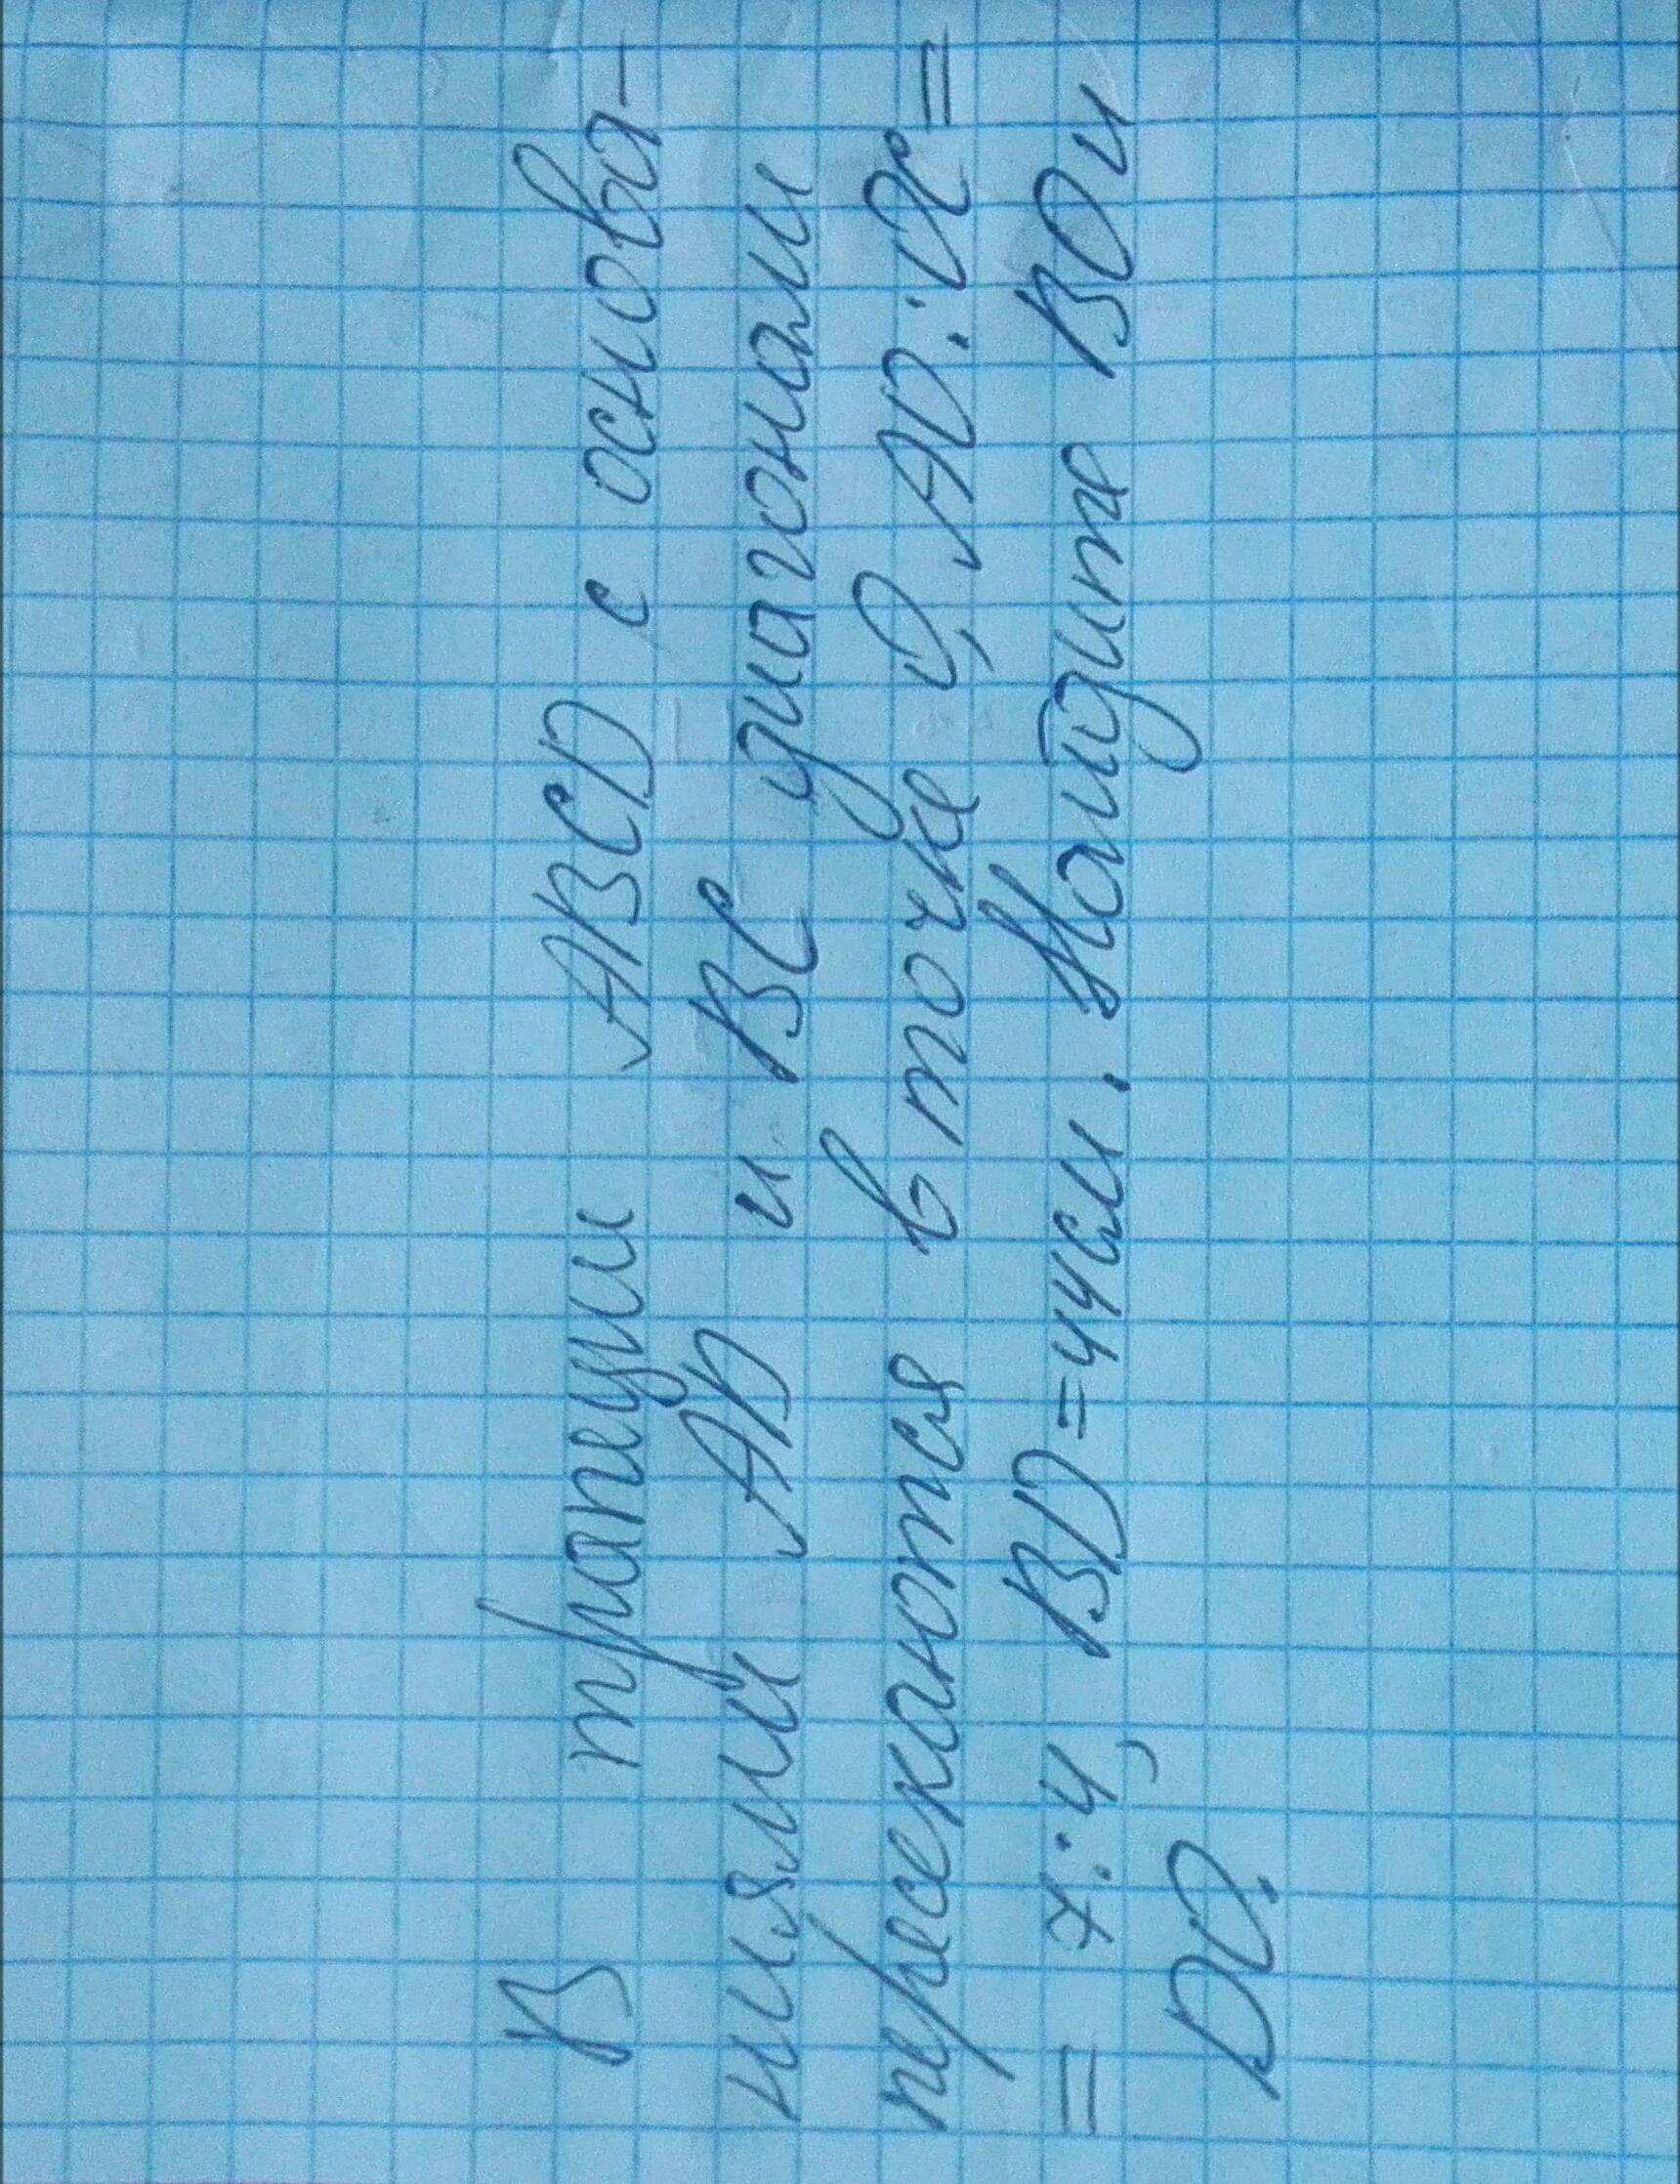 В трапеции ABCD с основа-
ниями AD и BC диагонали
пересекаются в точке O, AO:OC=
= 7:4, BD=44см. Найдите BO и
DO.